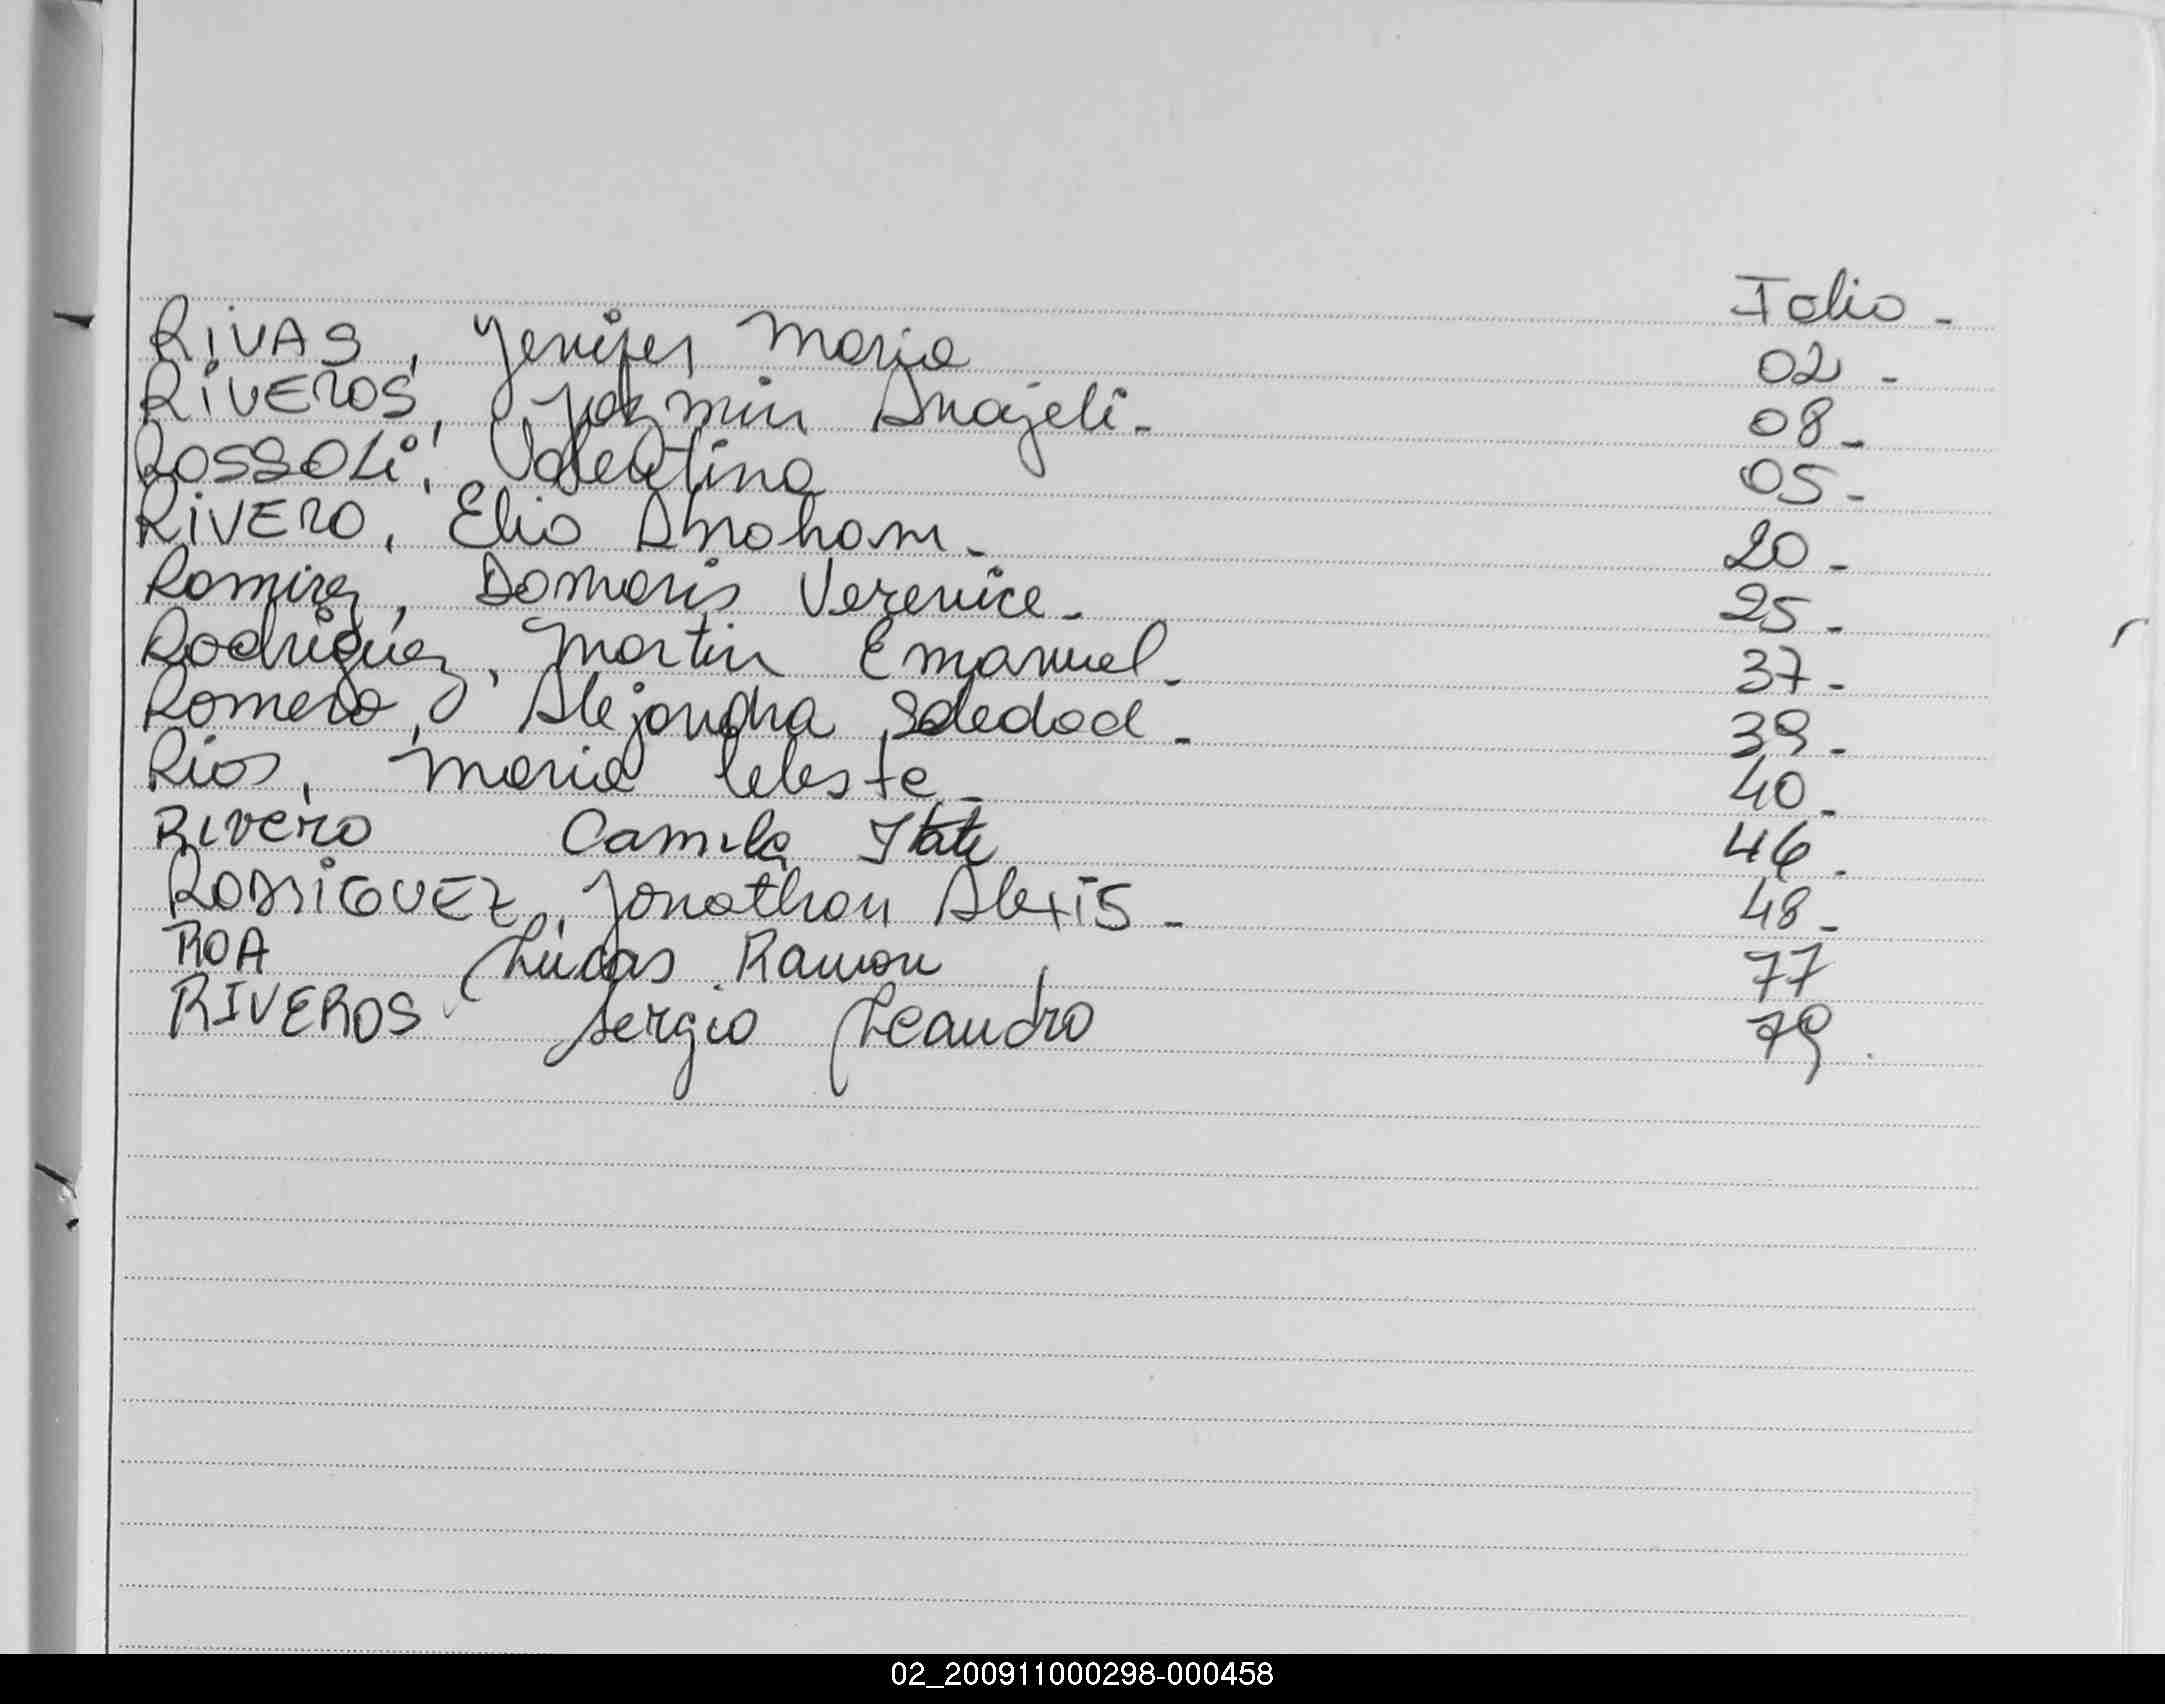 Folio -
RIVAS, Yenifer Maria 02 -
RIVEROS, Jazmin Anajeli - 08 -
ROSSOLI, Valentina 05 -
RIVERO, Elio Abraham - 20 -
Ramirez, Damaris Verenice - 25 -
Rodriguez, Martin Emanuel - 37 -
Romero, Alejandra Soledad - 39 -
Rios, Maria Celeste - 40 -
Rivero Camila Itati 46 -
RODRIGUEZ, Jonathan Alexis - 48 -
ROA Lucas Ramon 77
RIVEROS Sergio Leandro 79 .
02_200911000298-000458